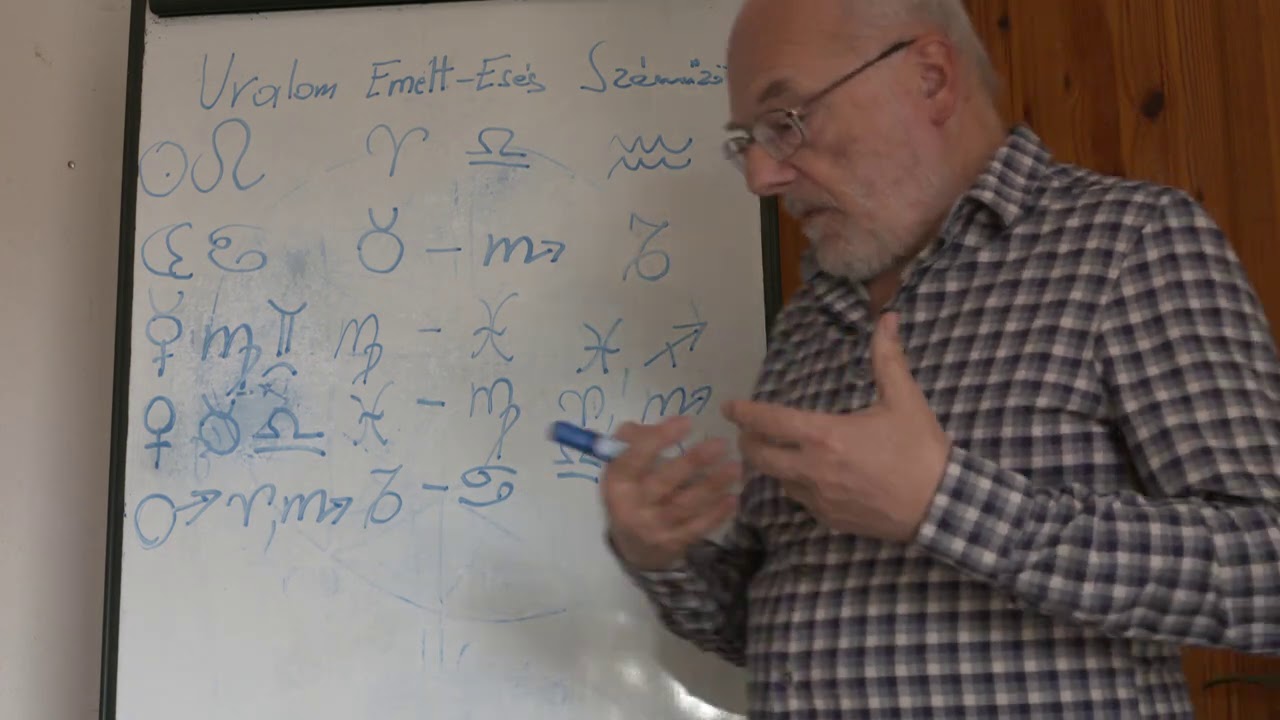 Uralom Emelt-Esés Száműzö
☉ ♌ ♈ ♎ ♒
☾ ♋ ♉ - ♏ ♑
☿ ♍ ♊ ♍ - ♓ ♓ ♐
♀ ♉ ♎ ♓ - ♍ ♈, ♏
♂ ♈, ♏ ♑ - ♋ ♎